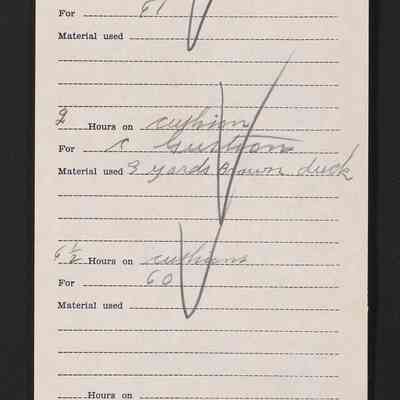 For 61
Material used
2 Hours on cushion
For C
Material used 3 yards Brown duck
6 1/2 Hours on cushions
For 60
Material used
Hours on